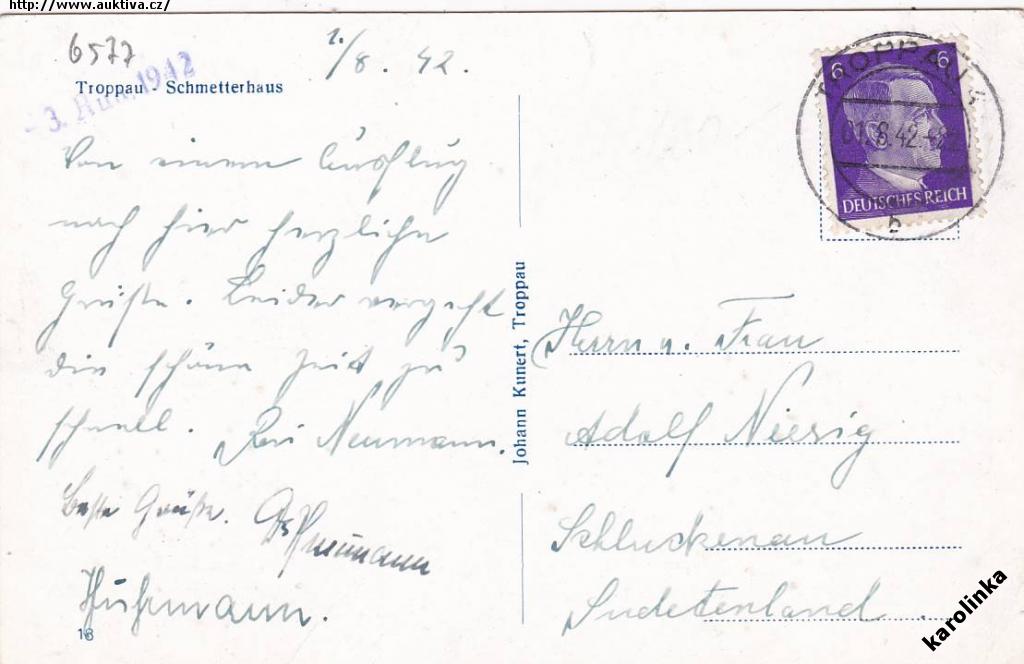 http://www.auktiva.cz/
6577
1./8. 42.
3. Aug. 1942
Troppau - Schmetterhaus
Von einem Ausflug
nach hier herzliche
Grüße. Leider vergeht
die schöne Zeit zu
schnell. Neumann.
Beste Grüße.
16
Johann Kunert, Troppau
TROPPAU
01.8.42
b
6 6
DEUTSCHES REICH
Herrn u. Frau
Adolf Niesig
Schluckenau
Sudetenland.
karolinka